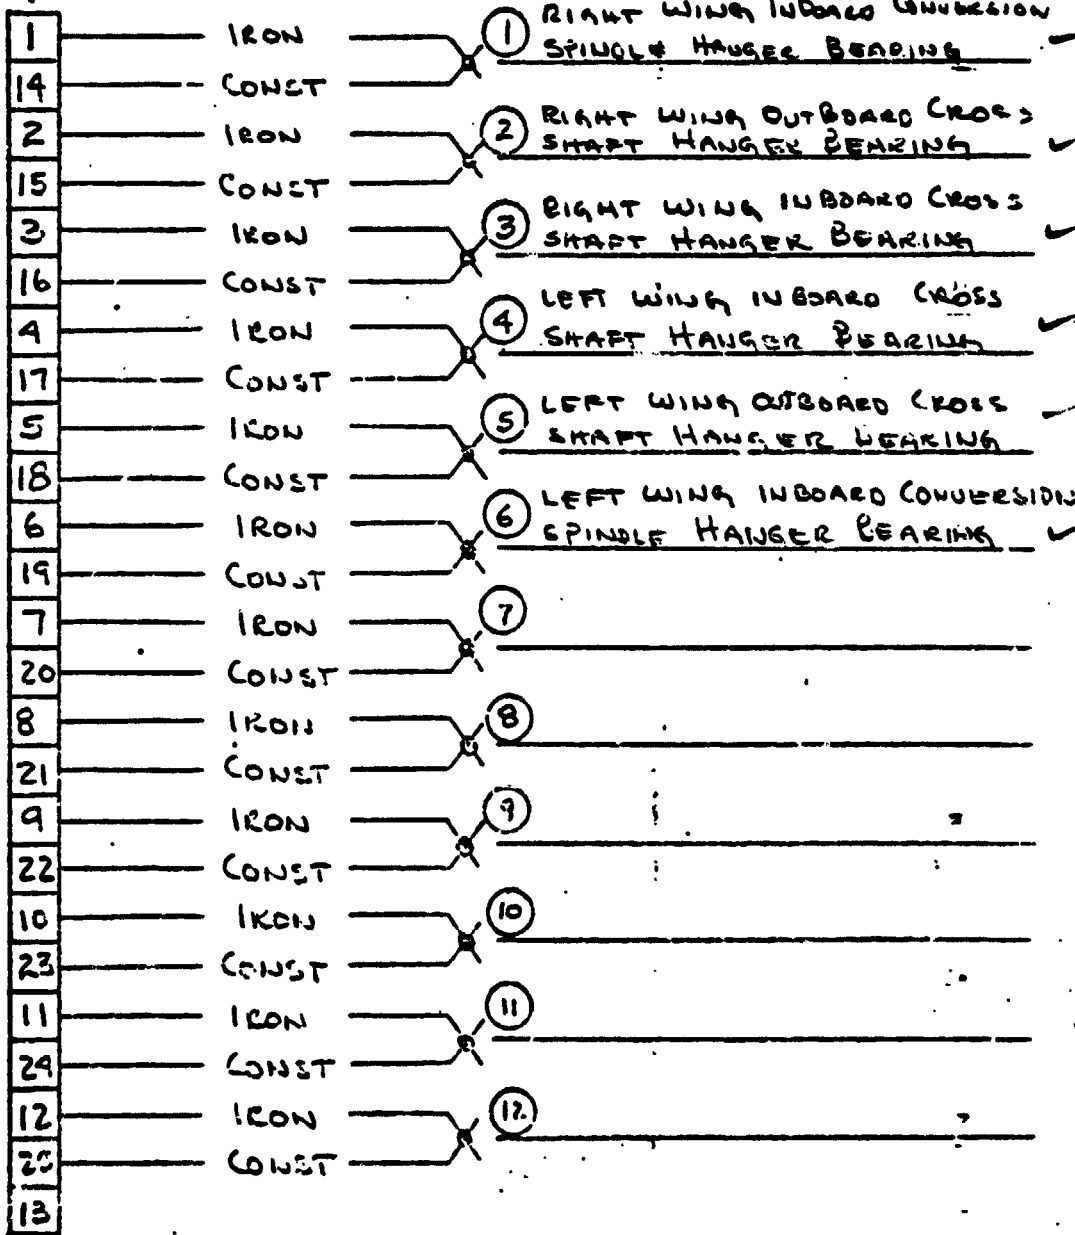 1 IRON 1 RIGHT WING INBOARD CONVERSION
SPINDLE HANGER BEARING
14 CONST
2 IRON 2 RIGHT WING OUTBOARD CROSS
SHAFT HANGER BEARING
15 CONST
3 IRON 3 RIGHT WING INBOARD CROSS
SHAFT HANGER BEARING
16 CONST
4 IRON 4 LEFT WING INBOARD CROSS
SHAFT HANGER BEARING
17 CONST
5 IRON 5 LEFT WING OUTBOARD CROSS
SHAFT HANGER BEARING
18 CONST
6 IRON 6 LEFT WING INBOARD CONVERSION
SPINDLE HANGER BEARING
19 CONST
7 IRON 7
20 CONST
8 IRON 8
21 CONST
9 IRON 9
22 CONST
10 IRON 10
23 CONST
11 IRON 11
24 CONST
12 IRON 12
25 CONST
13